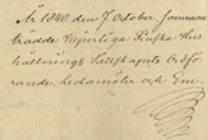 År 1840 den 7 October sammanträdde Kejserliga Finska Hushållnings Sällskapets Ordförande, Ledamöter och Em.